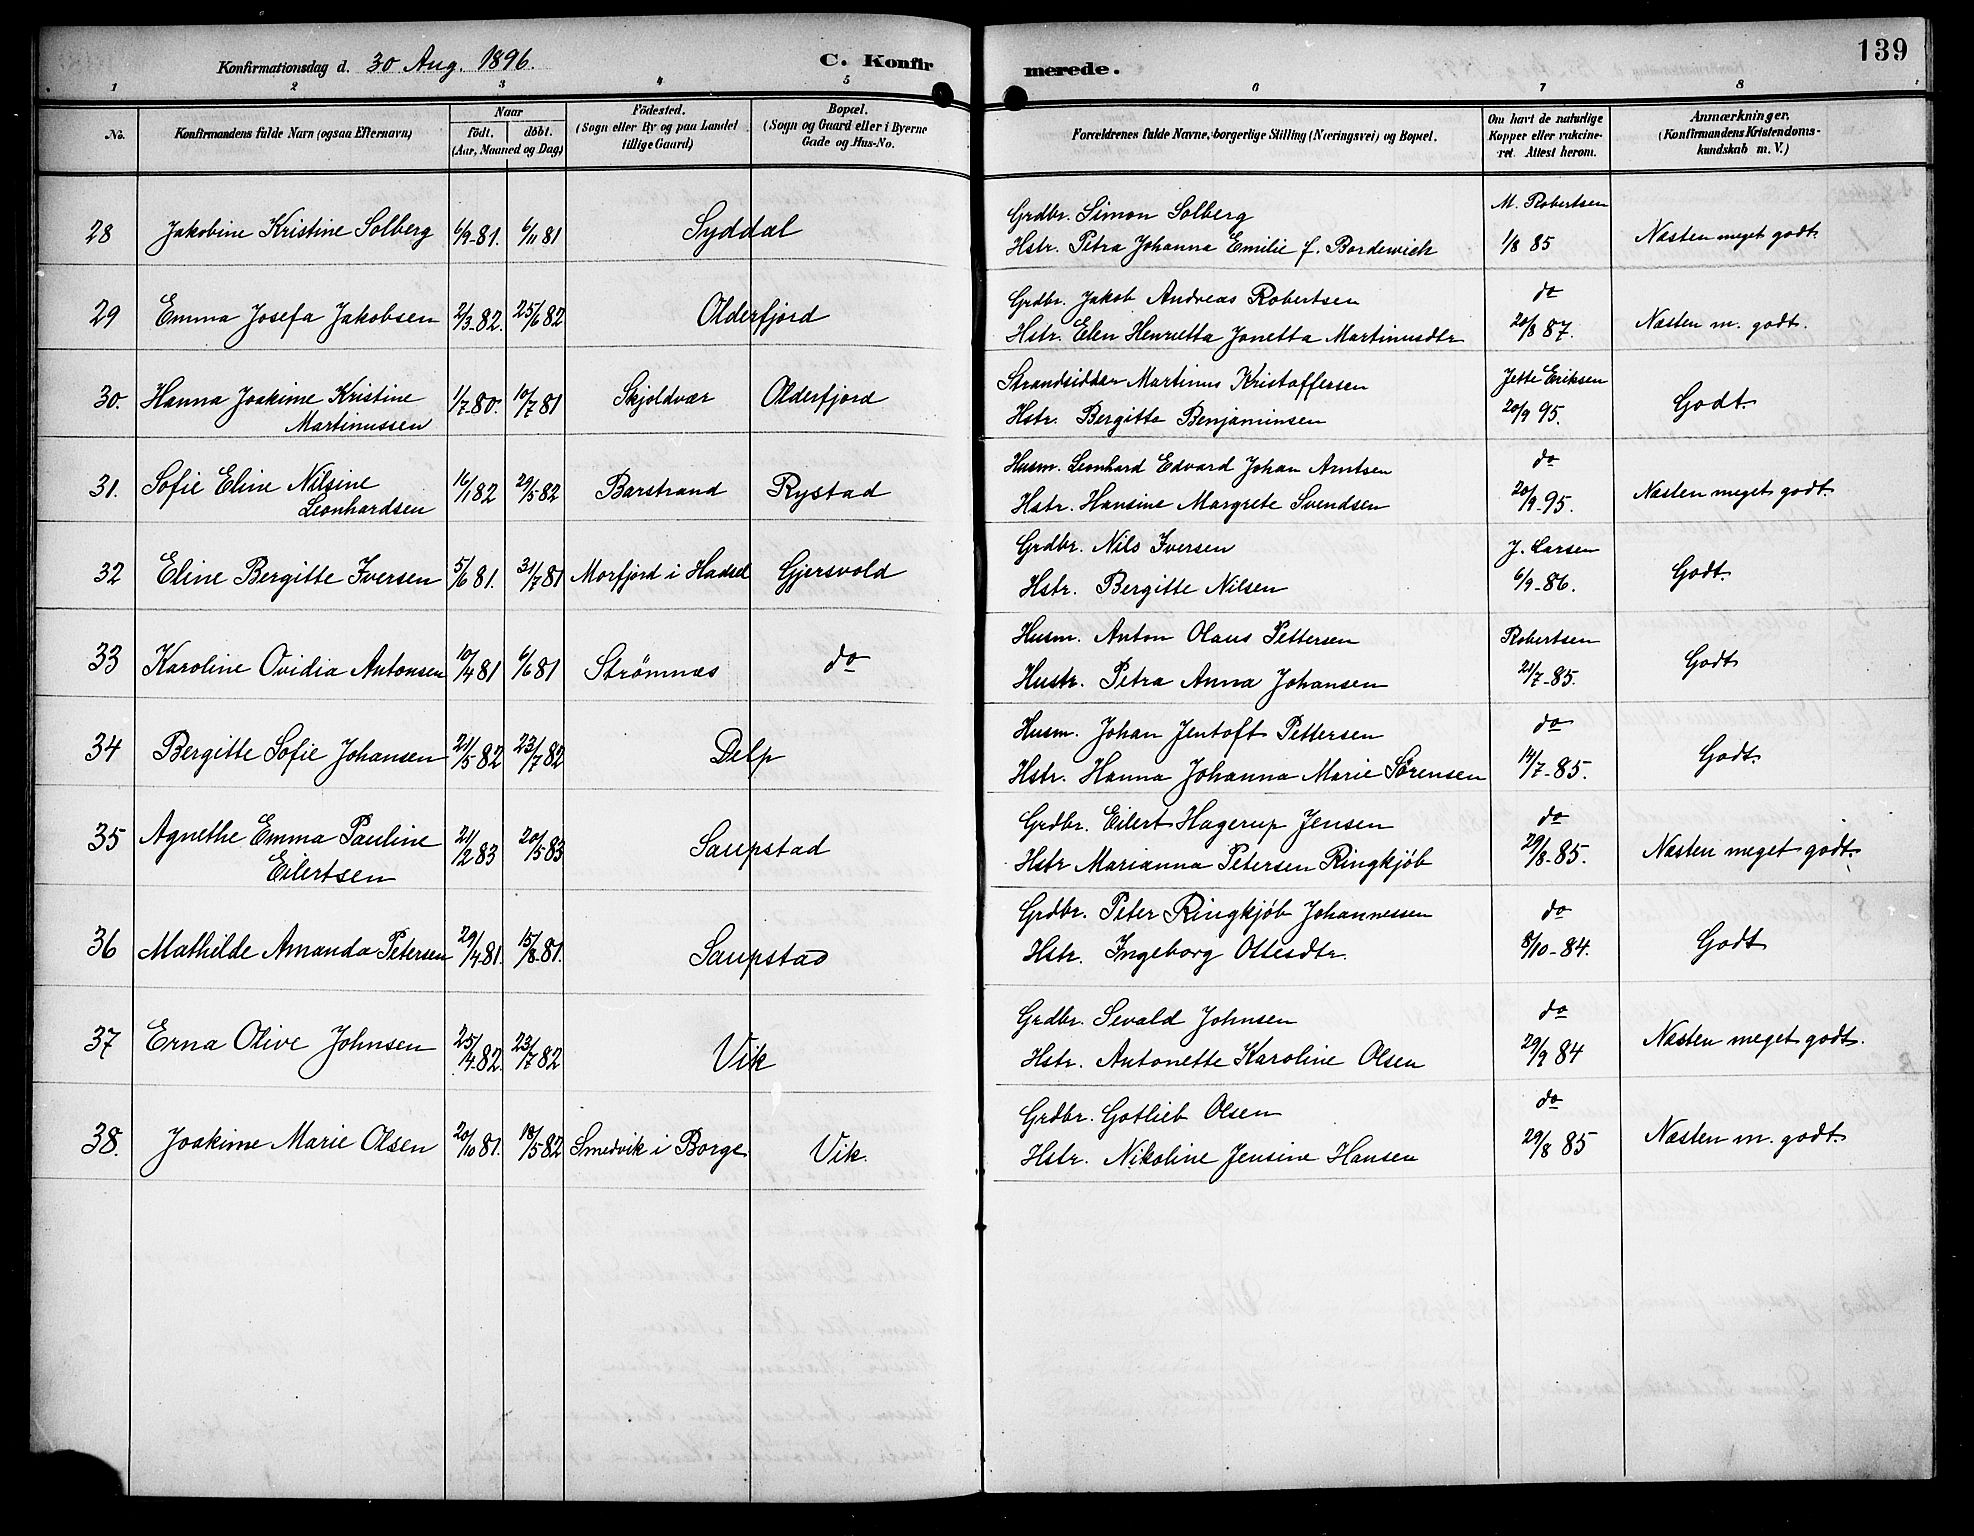 Konfirmationsdag d. 30 Aug. 1896. C. Konfirmerede. 139
1 2 3 4 5 6 7 8
No. Konfirmandens fulde Navn (ogsaa Efternavn) Naar födt. döbt. (Aar, Maaned og Dag) Födested. (Sogn eller By og paa Landet tillige Gaard) Bopæl. (Sogn og Gaard eller i Byerne Gade og Hus-No. Forældrenes fulde Navne, borgerlige Stilling (Næringsvei) og Bopæl. Om havt de naturlige Kopper eller vakcineret. Attest herom. Anmærkninger. (Konfirmandens Kristendomskundskab m. V.)
28 Jakobine Kristine Solberg 6/9-81. 6/11 81 Syddal Grdbr. Simon Solberg M. Robertsen Næsten meget godt.
Hstr. Petra Johanna Emilie f. Bordewich 1/8 85
29 Emma Josefa Jakobsen 2/3.82. 25/6 82 Olderfjord Grdbr. Jakob Andreas Robertsen do Næsten m. godt.
Hstr. Elen Henrietta Jonetta Martinusdtr 20/8 87.
30. Hanna Joakime Kristine 1/7.80. 10/7 81 Skjoldvær Olderfjord Strandsidder Martinus Kristoffersen Jette Eriksen Godt.
Martinussen Hstr. Bergitte Benjaminsen 20/9 95.
31. Sofie Eline Nilsine 16/1 82 29/5 82 Barstrand Rystad Husm. Leonhard Edvard Johan Arntsen do Næsten meget godt.
Leonhardsen Hstr. Hansine Margrete Svendsen 20/9-95.
32 Eline Bergitte Iversen 5/6 81. 31/7 81 Morfjord i Hadsel Gjersvold Grdbr. Nils Iversen J. Larsen Godt.
Hstr. Bergitte Nilsen 6/9-86.
33 Karoline Ovidia Antonsen 10/4 81 6/6 81 Strømnæs do Husm. Anton Olaus Pettersen Robertsen Godt
Hustr. Petra Anna Johansen 21/7-85.
34 Bergitte Sofie Johansen 21/5 82 23/7 82 Delp Husm. Johan Jentoft Pettersen do Godt.
Hstr. Hanna Johanna Marie Sørensen 14/7-85.
35 Agnethe Emma Pauline 21/2 83 20/5 83 Saupstad Grdbr. Eilert Hagerup Jensen do Næsten meget godt.
Eilertsen Hstr Marianna Petersen Ringkjöb 29/8-85.
36 Mathilde Amanda Petersen 29/4 81. 15/8.81. Saupstad Grdbr. Peter Ringkjöb Johannessen do Godt
Hstr. Ingeborg Ottesdtr. 8/10-84.
37 Erna Olive Johnsen 25/4.82. 23/7 82 Vik Grdbr. Sevald Johnsen do Næsten meget godt.
Hstr. Antonette Karoline Olsen 29/9 84
38. Joakime Marie Olsen 20/10 81. 18/5 82 Smedvik i Borge Vik. Grdbr. Gotlieb Olsen do Næsten m. godt.
Hstr. Nikoline Jensine Hansen 29/8 85